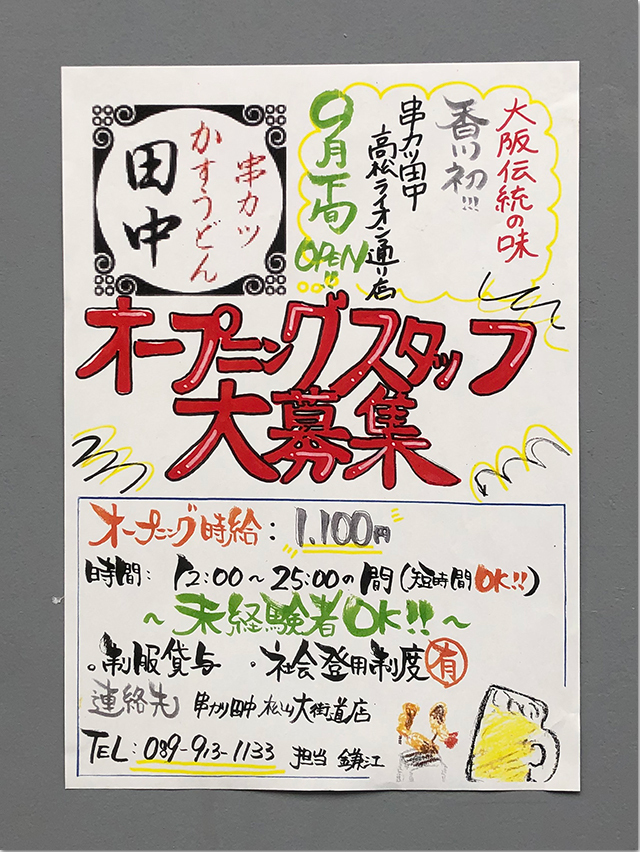 大阪伝統の味
香川初!!!
串カツ田中
高松ライオン通り店
9月下旬
OPEN!!
串カツ
かすうどん
田中
オープニングスタッフ
大募集
オープニング時給：1,100円
時間：12:00～25:00の間(短時間OK!!)
～未経験者OK!!～
。制服貸与 ・社会登用制度有
連絡先 串カツ田中 松山大街道店
TEL：089-913-1133 担当 鎌江